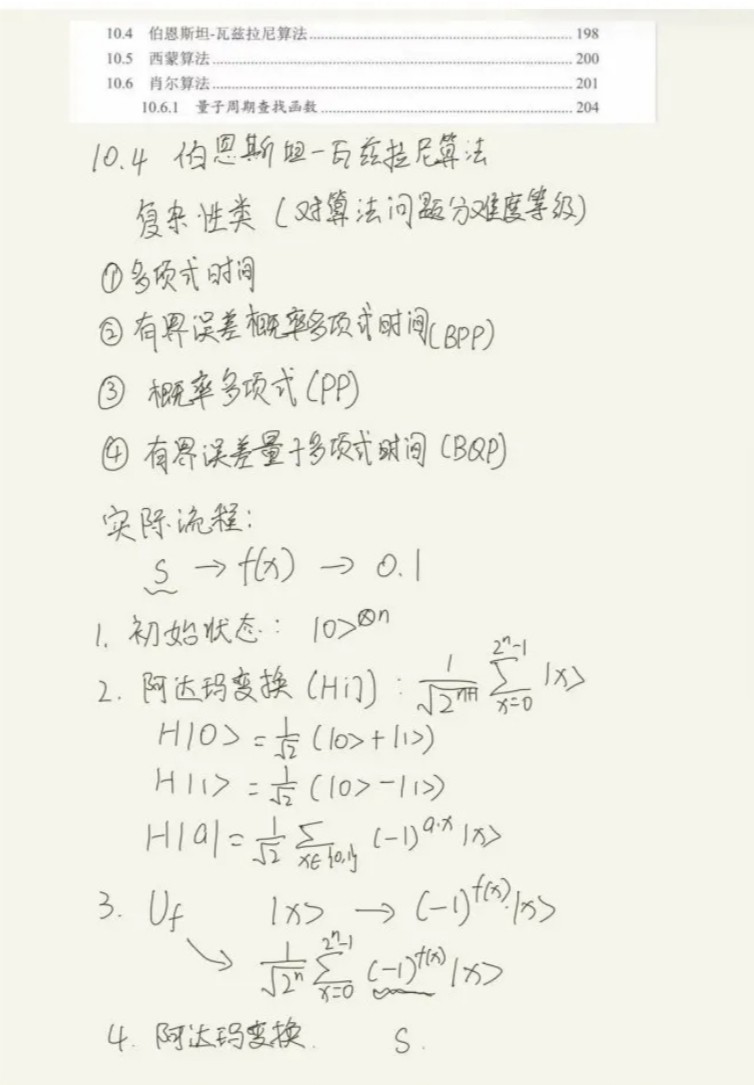 10.4 伯恩斯坦-瓦兹拉尼算法 198
10.5 西蒙算法 200
10.6 肖尔算法 201
10.6.1 量子周期查找函数 204
10.4 伯恩斯坦-瓦兹拉尼算法
复杂性类 (对算法问题分难度等级)
① 多项式时间
② 有界误差概率多项式时间(BPP)
③ 概率多项式(PP)
④ 有界误差量子多项式时间 (BQP)
实际流程:
S → f(x) → 0.1
1. 初始状态: |0>⊗n
2. 阿达玛变换 : 1/√2ⁿ⁺¹ ∑_{x=0}^{2ⁿ-1} |x>
H|0> = 1/√2 (|0>+|1>)
H|1> = 1/√2 (|0>-|1>)
H|a| = 1/√2 ∑_{x∈{0,1}} (-1)^{a·x} |x>
3. Uf |x> → (-1)^{f(x)}·|x>
↘ 1/√2ⁿ ∑_{x=0}^{2ⁿ-1} (-1)^{f(x)} |x>
4. 阿达玛变换. S.